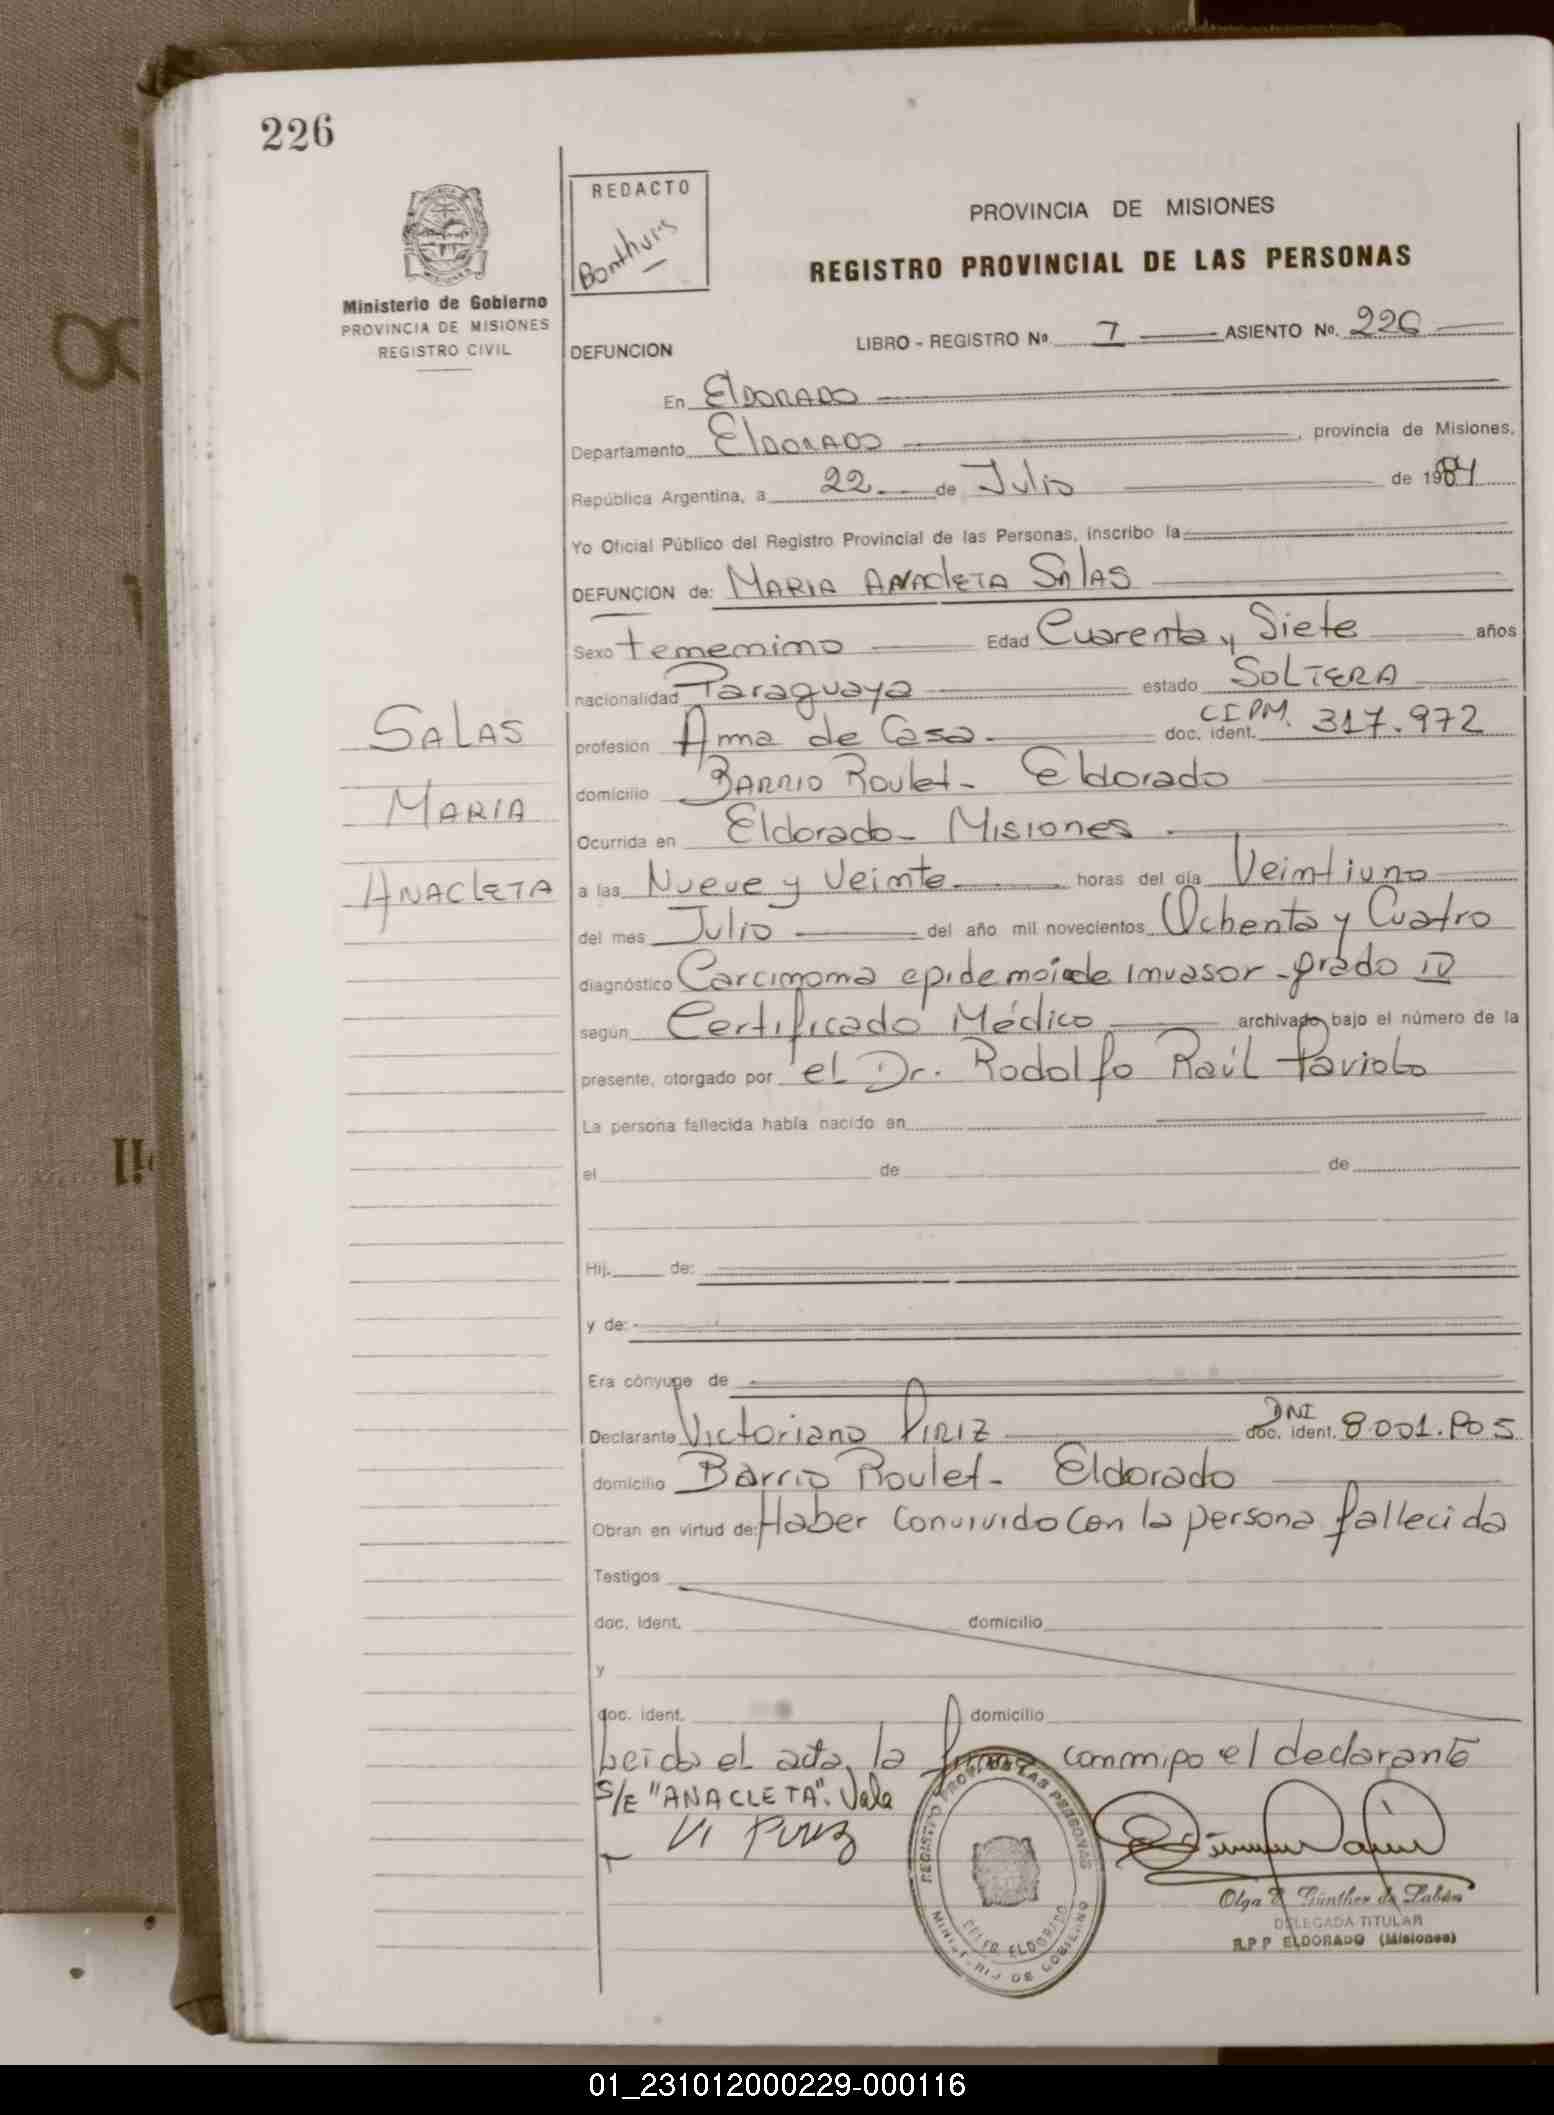 226
REDACTO
Bonthuis
Ministerio de Gobierno
PROVINCIA DE MISIONES
REGISTRO CIVIL
PROVINCIA DE MISIONES
REGISTRO PROVINCIAL DE LAS PERSONAS
DEFUNCION
LIBRO - REGISTRO No. 7 ASIENTO No. 226
En ElDORADO
Departamento ElDORADO, provincia de Misiones,
República Argentina, a 22 de Julio de 1984
Yo Oficial Público del Registro Provincial de las Personas, inscribo la
DEFUNCION de: MARIA ANACLETA SALAS
Sexo Femenino Edad Cuarenta y Siete años
nacionalidad Paraguaya estado SOLTERA
profesión Ama de Casa doc. ident. CIPM. 317.972
domicilio BARRIO Roulet - Eldorado
Ocurrida en Eldorado - Misiones
a las Nueve y Veinte horas del día Veintiuno
del mes Julio del año mil novecientos Ochenta y Cuatro
diagnóstico Carcinoma invasor - grado IV
según Certificado Médico archivado bajo el número de la
presente, otorgado por el Dr. Rodolfo Raúl
La persona fallecida había nacido en
el de de
Hij. de:
y de:
Era cónyuge de
Declarante Victoriano PIRIZ DNI doc. ident.
domicilio Barrio Roulet - Eldorado
Obran en virtud de: Haber convivido con la persona fallecida
Testigos
doc. ident. domicilio
y
doc. ident. domicilio
Leida el acta, la firma conmigo el declarante
S/E "ANACLETA". Vale
SALAS
MARIA
ANACLETA
REGISTRO PROVINCIAL DE LAS PERSONAS
DELEG. ELDORADO
MINISTERIO DE GOBIERNO
Olga Günther de Labán
DELEGADA TITULAR
R.P.P ELDORADO (Misiones)
01_231012000229-000116